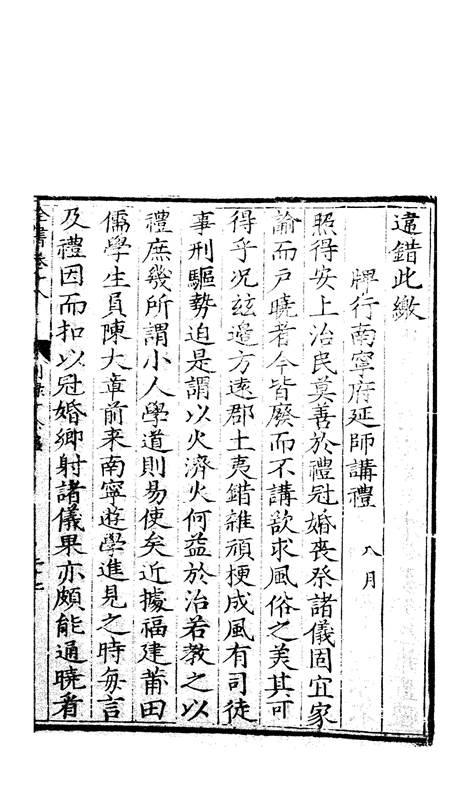 違錯此繳
牌行南寧府延師講禮 八月
照得安上治民莫善於禮冠婚喪祭諸儀固宜家
諭而戶曉者今皆廢而不講欲求風俗之美其可
得乎况玆邉方遠郡土夷錯雜頑梗成風有司徒
事刑驅勢迫是謂以火濟火何益於治若教之以
禮庶幾所謂小人學道則易使矣近據福建莆田
儒學生員陳大章前来南寧遊學進見之時每言
及禮因而扣以冠婚鄉射諸儀果亦頗能通曉看
全書卷十八